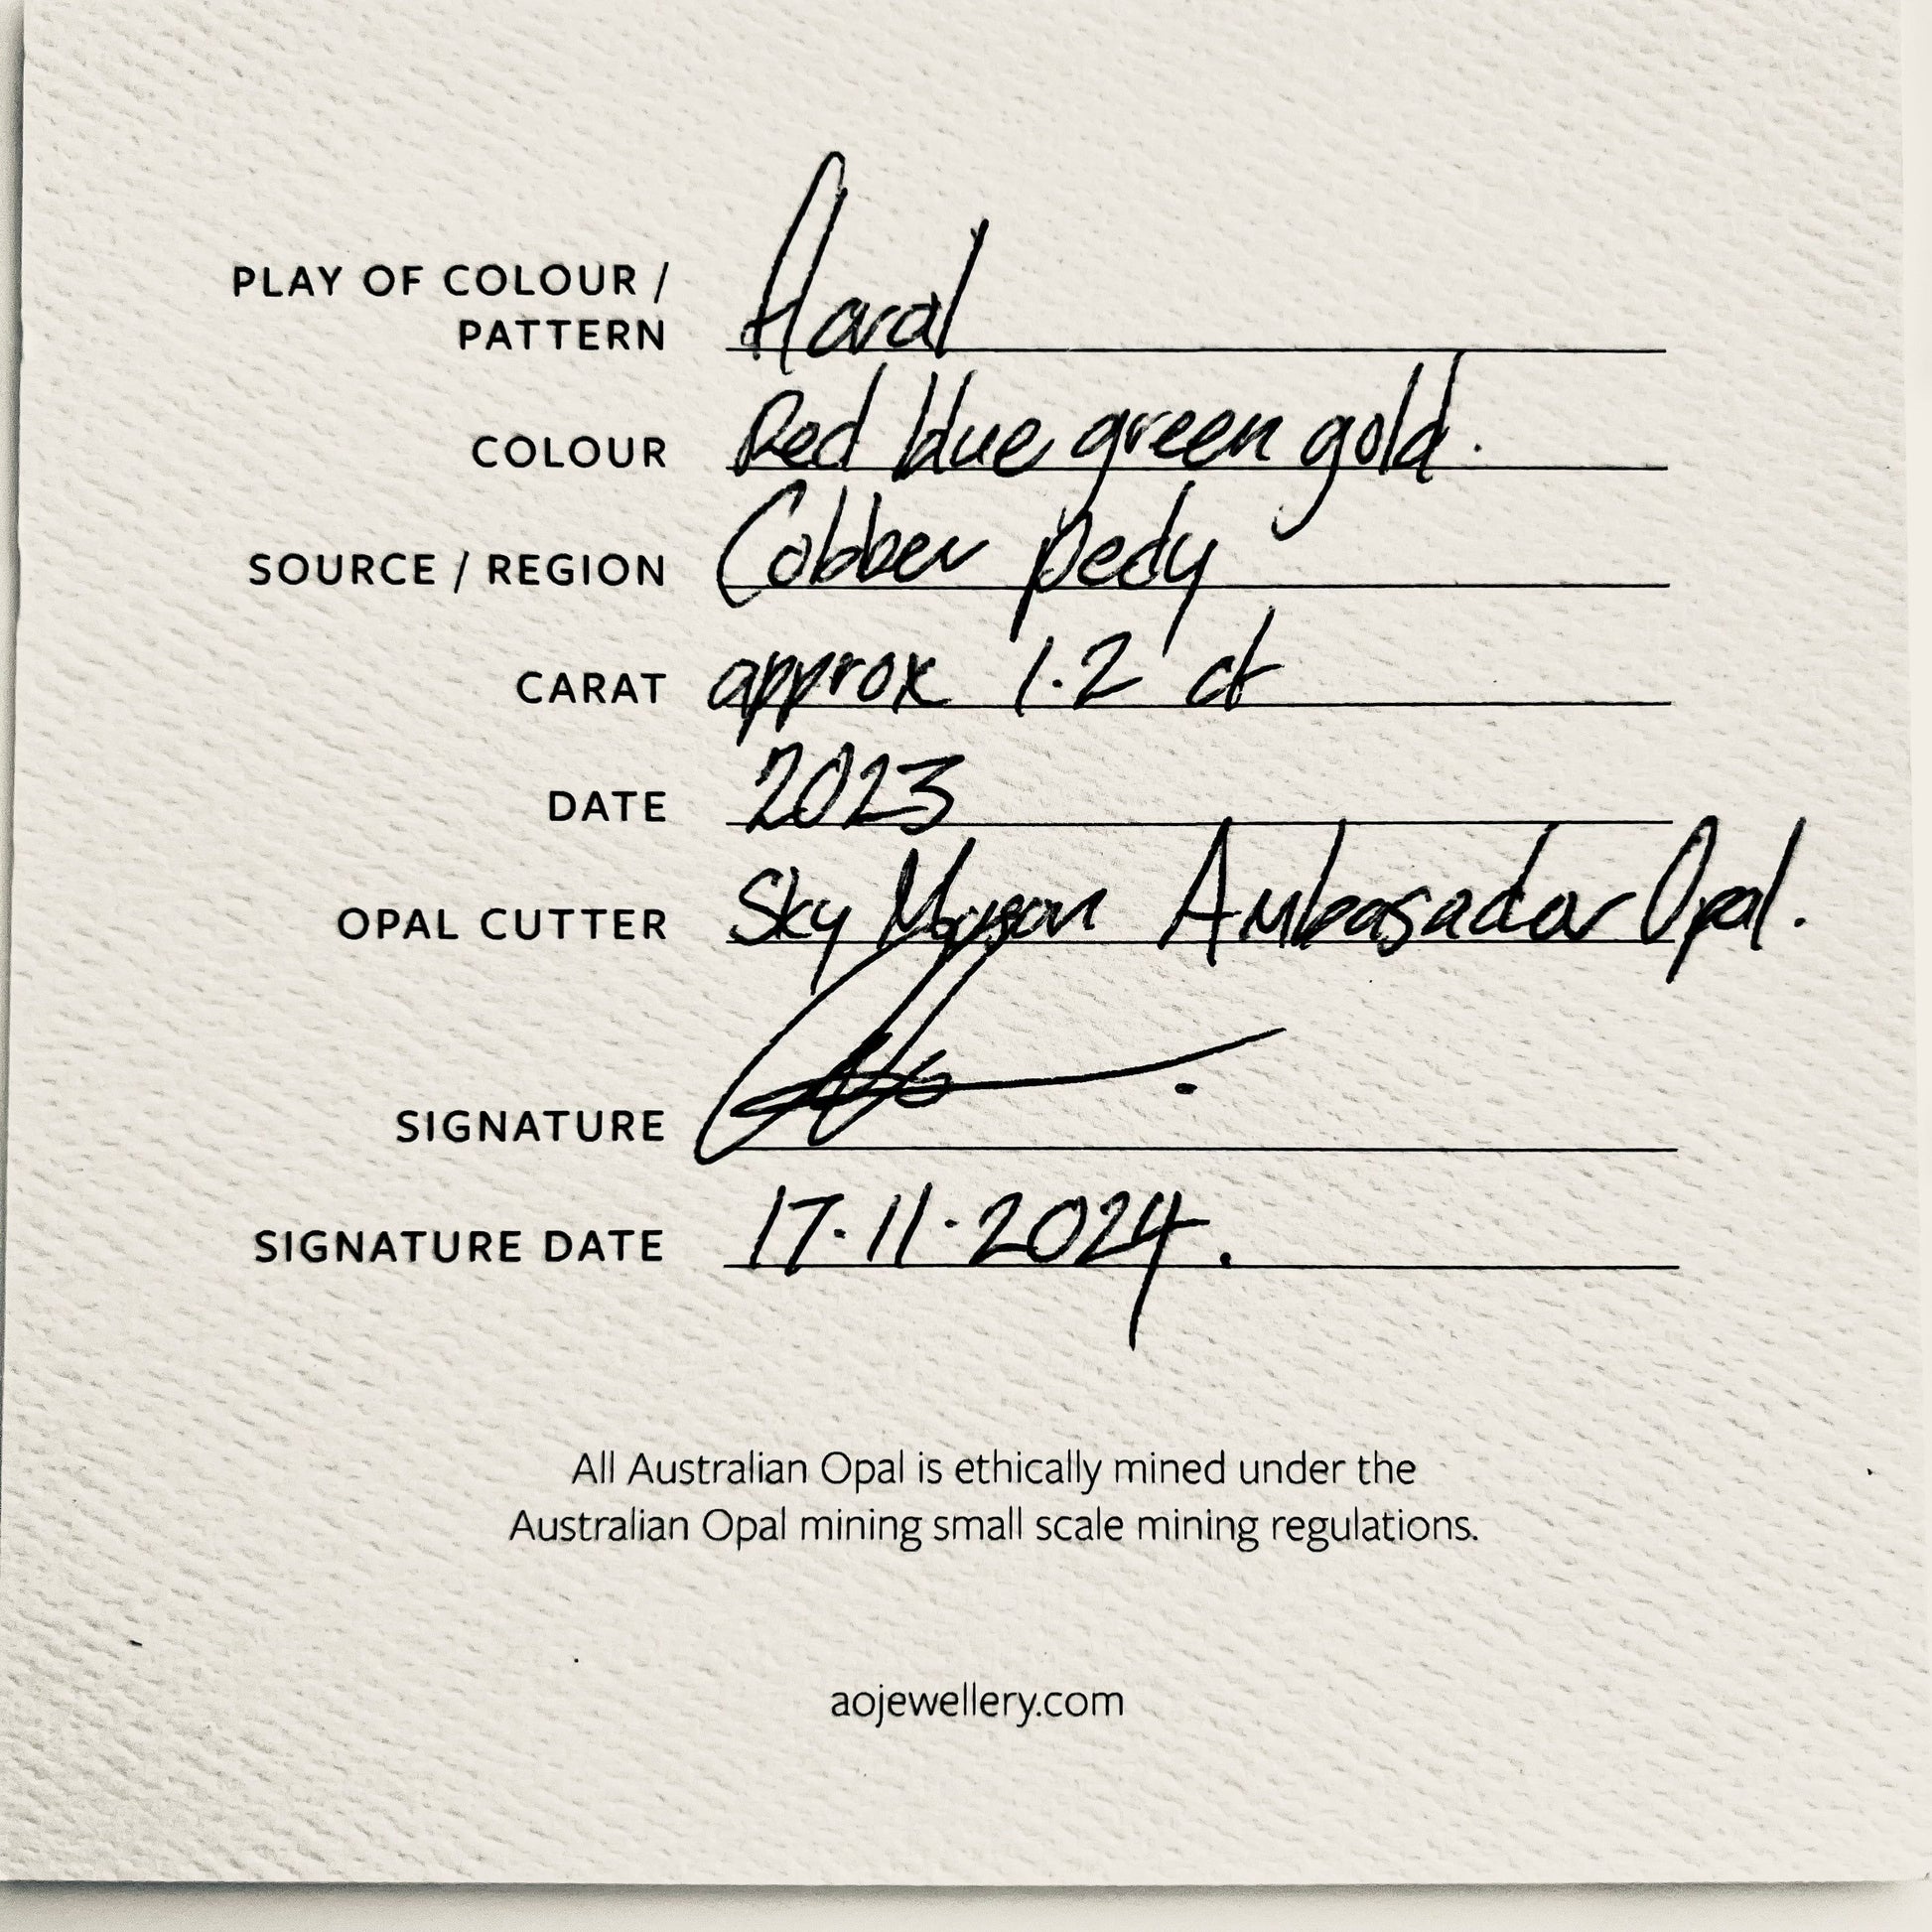 PLAY OF COLOUR /
PATTERN floral
COLOUR Red blue green gold.
SOURCE / REGION Cobber pedy
CARAT approx 1.2 ct
DATE 2023
OPAL CUTTER Sky Ambasador Opal.
SIGNATURE
SIGNATURE DATE 17.11.2024.
All Australian Opal is ethically mined under the
Australian Opal mining small scale mining regulations.
aojewellery.com